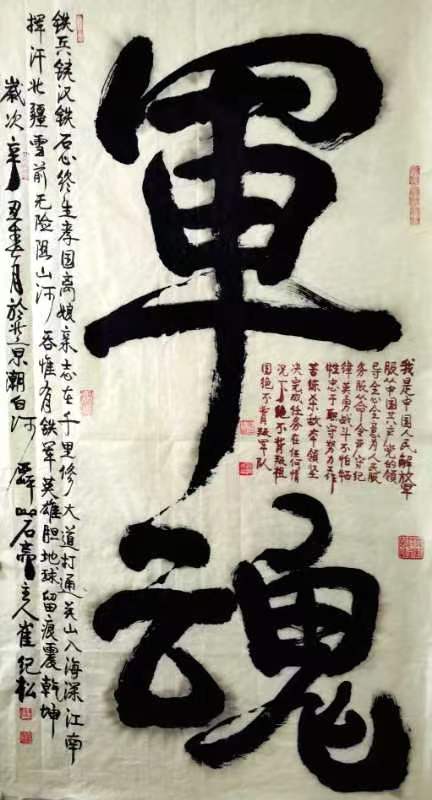 軍魂
我是中国人民解放军
服从中国共产党的领
导全心全意为人民服
务服从命令严守纪
律英勇战斗不怕牺
牲忠于职守努力工作
苦练杀敌本领坚
决完成任务在任何情
况下绝不背叛祖
国绝不背叛军队
铁兵铁汉铁石心终生奉国离娘亲志在千里修大道打通关山入海深江南
挥汗北疆雪前无险阻山河吞惟有铁军英雄胆地球留痕震乾坤
歲次辛丑春月於北京潮白河畔石斋主人崔纪松